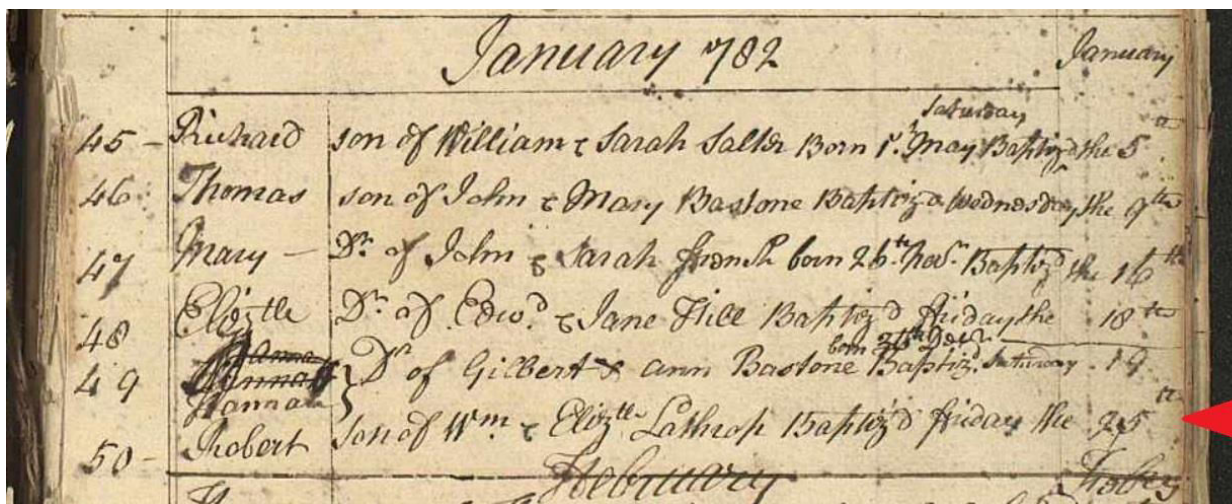 January 1782 January
45 - Richard son of William & Sarah Salter Born 1st May Baptiz'd Saturday the 5th
46 Thomas son of John & Mary Bastone Baptiz'd Wednesday the 9th
47 Mary - Dr of John & Sarah french born 26th Novr Baptiz'd the 16th
48 Elizth Dr of Edwd & Jane Hill Baptiz'd friday the 18th
49 Hannah } Dr of Gilbert & ann Bastone born Decr Baptiz'd Saturday 19
50 - Robert son of Wm & Elizth Lathrop Baptiz'd friday the 25th
February